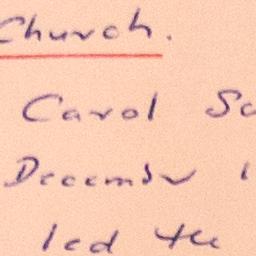 Church.
Carol
December
led the